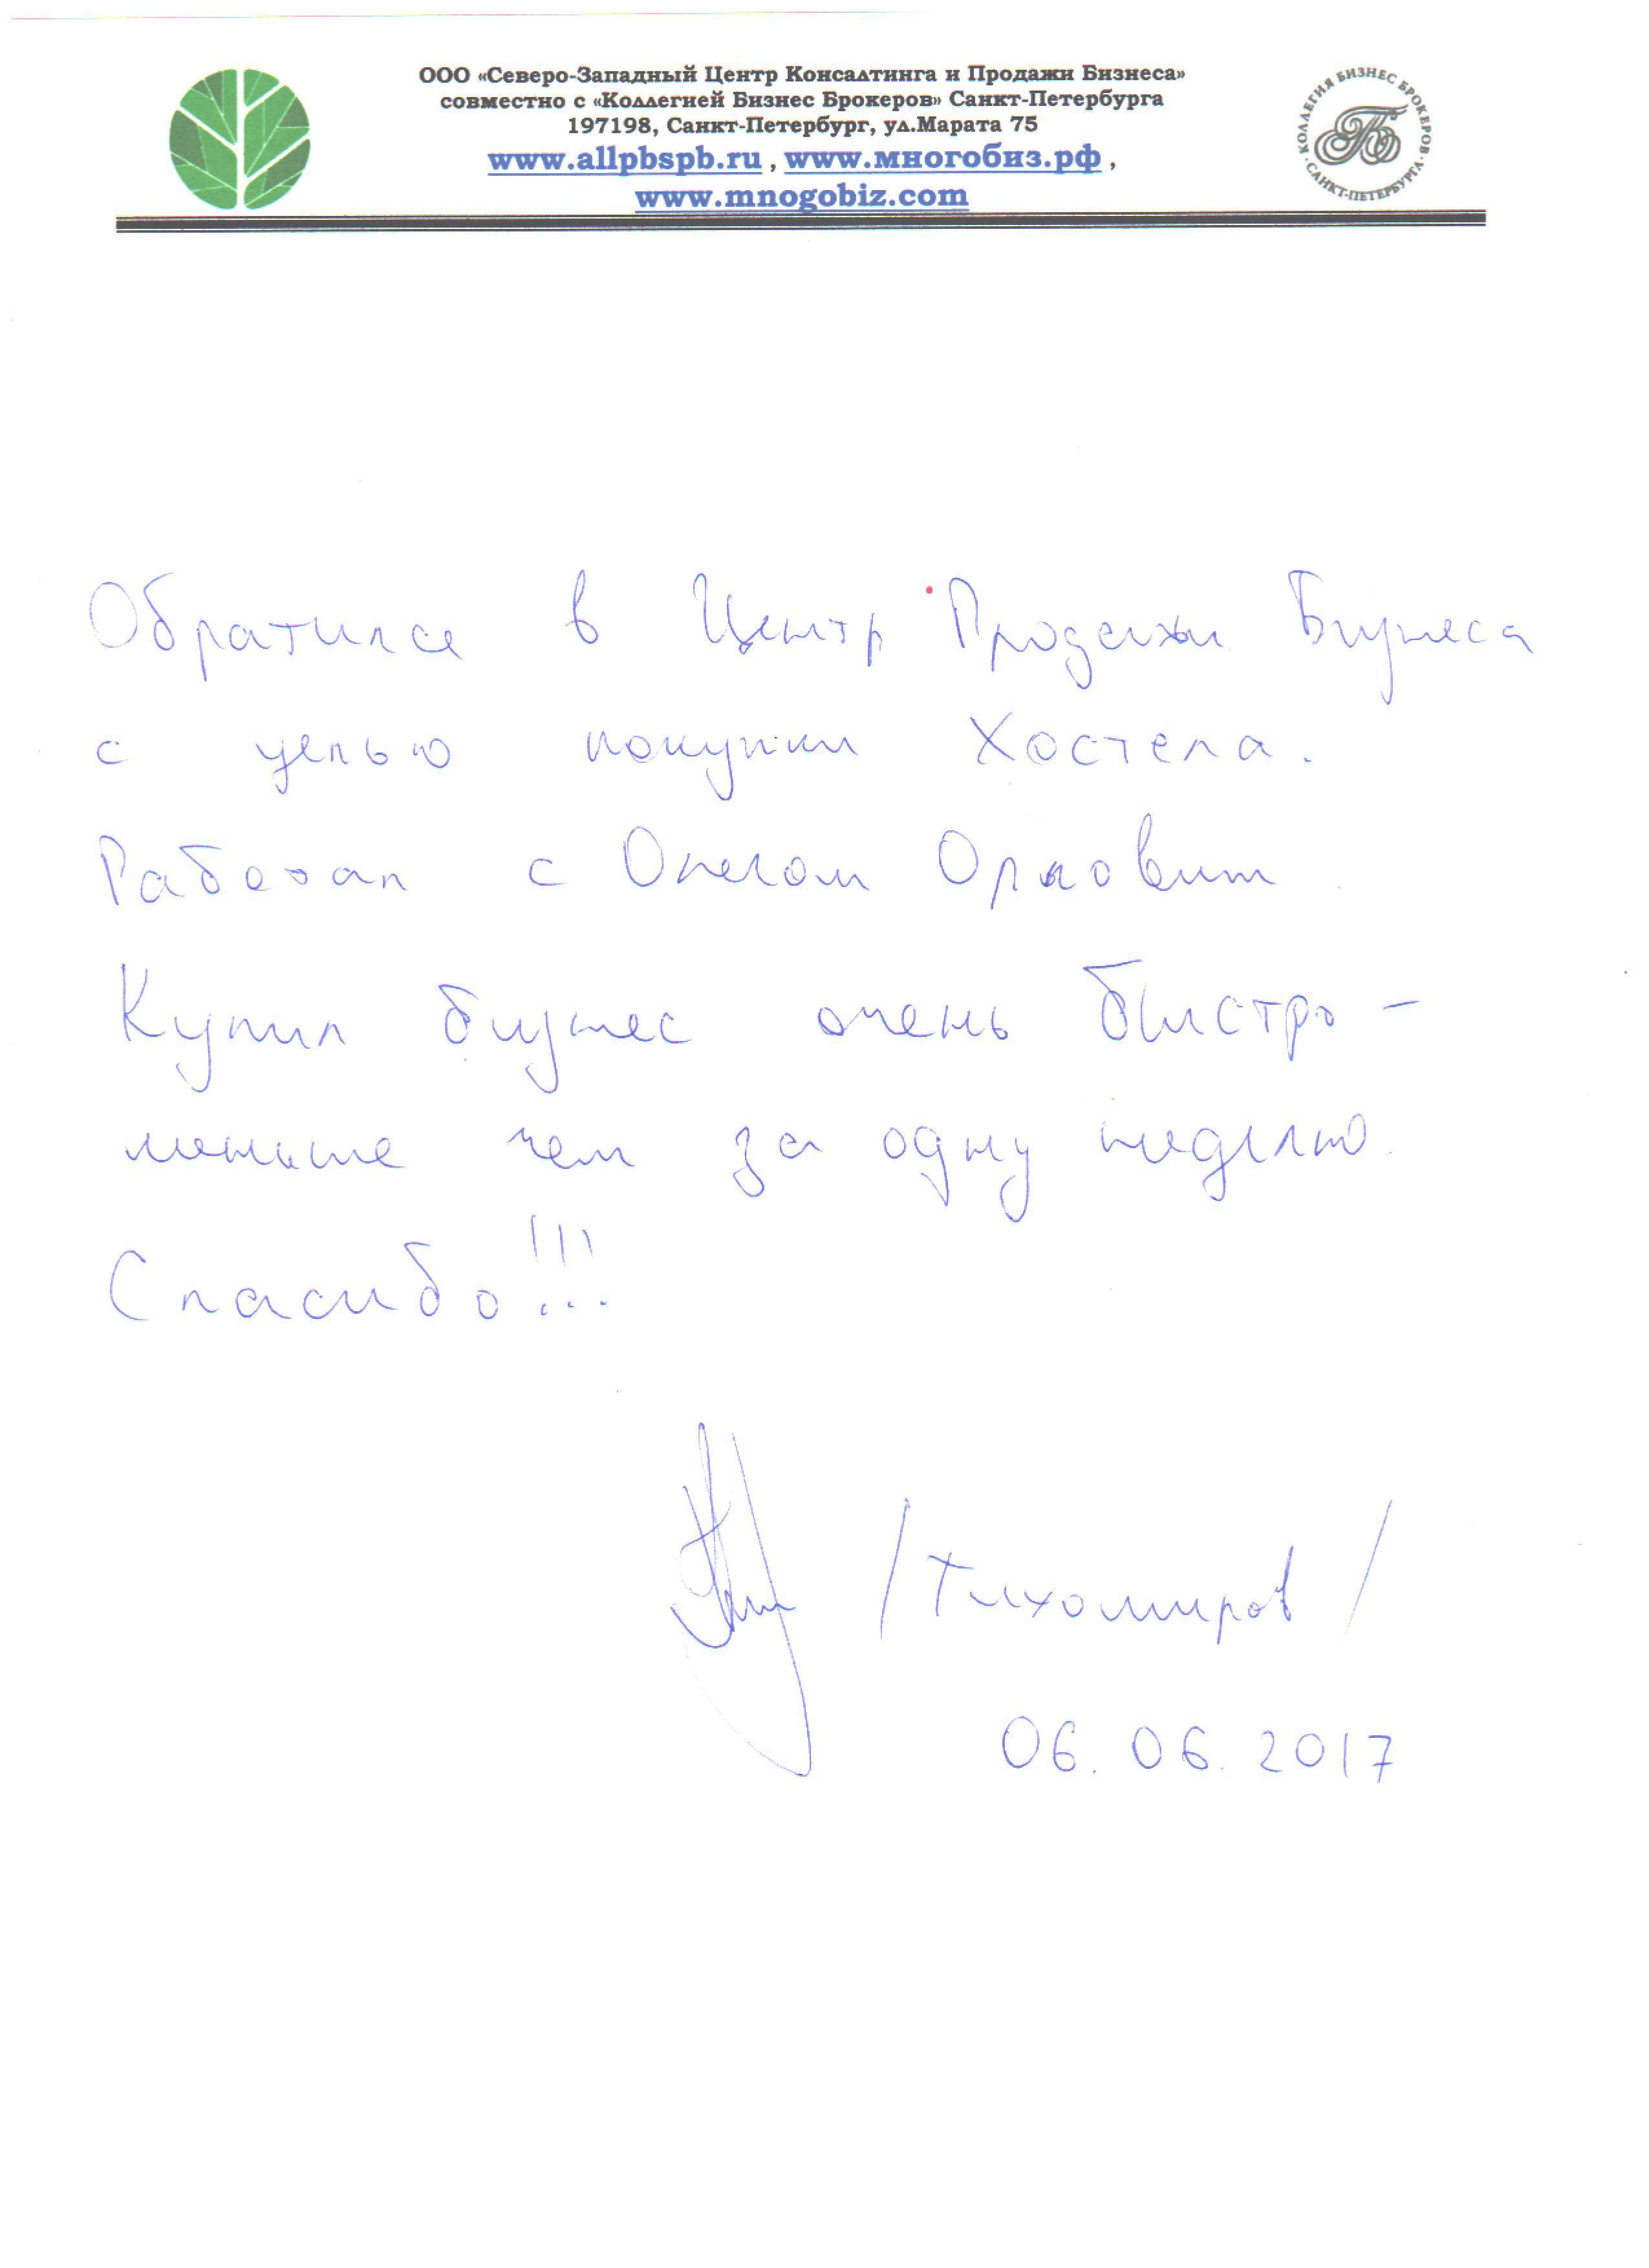 ООО «Северо-Западный Центр Консалтинга и Продажи Бизнеса»
совместно с «Коллегией Бизнес Брокеров» Санкт-Петербурга
197198, Санкт-Петербург, ул.Марата 75
www.allpbspb.ru , www.многобиз.рф ,
www.mnogobiz.com
КОЛЛЕГИЯ БИЗНЕС БРОКЕРОВ · САНКТ-ПЕТЕРБУРГА ·
Обратился в Центр Продажи Бизнеса
с целью покупки Хостела.
Работал с Олегом
Купил бизнес очень быстро –
меньше чем за одну неделю.
Спасибо!!!
/Тихомиров/
06.06.2017